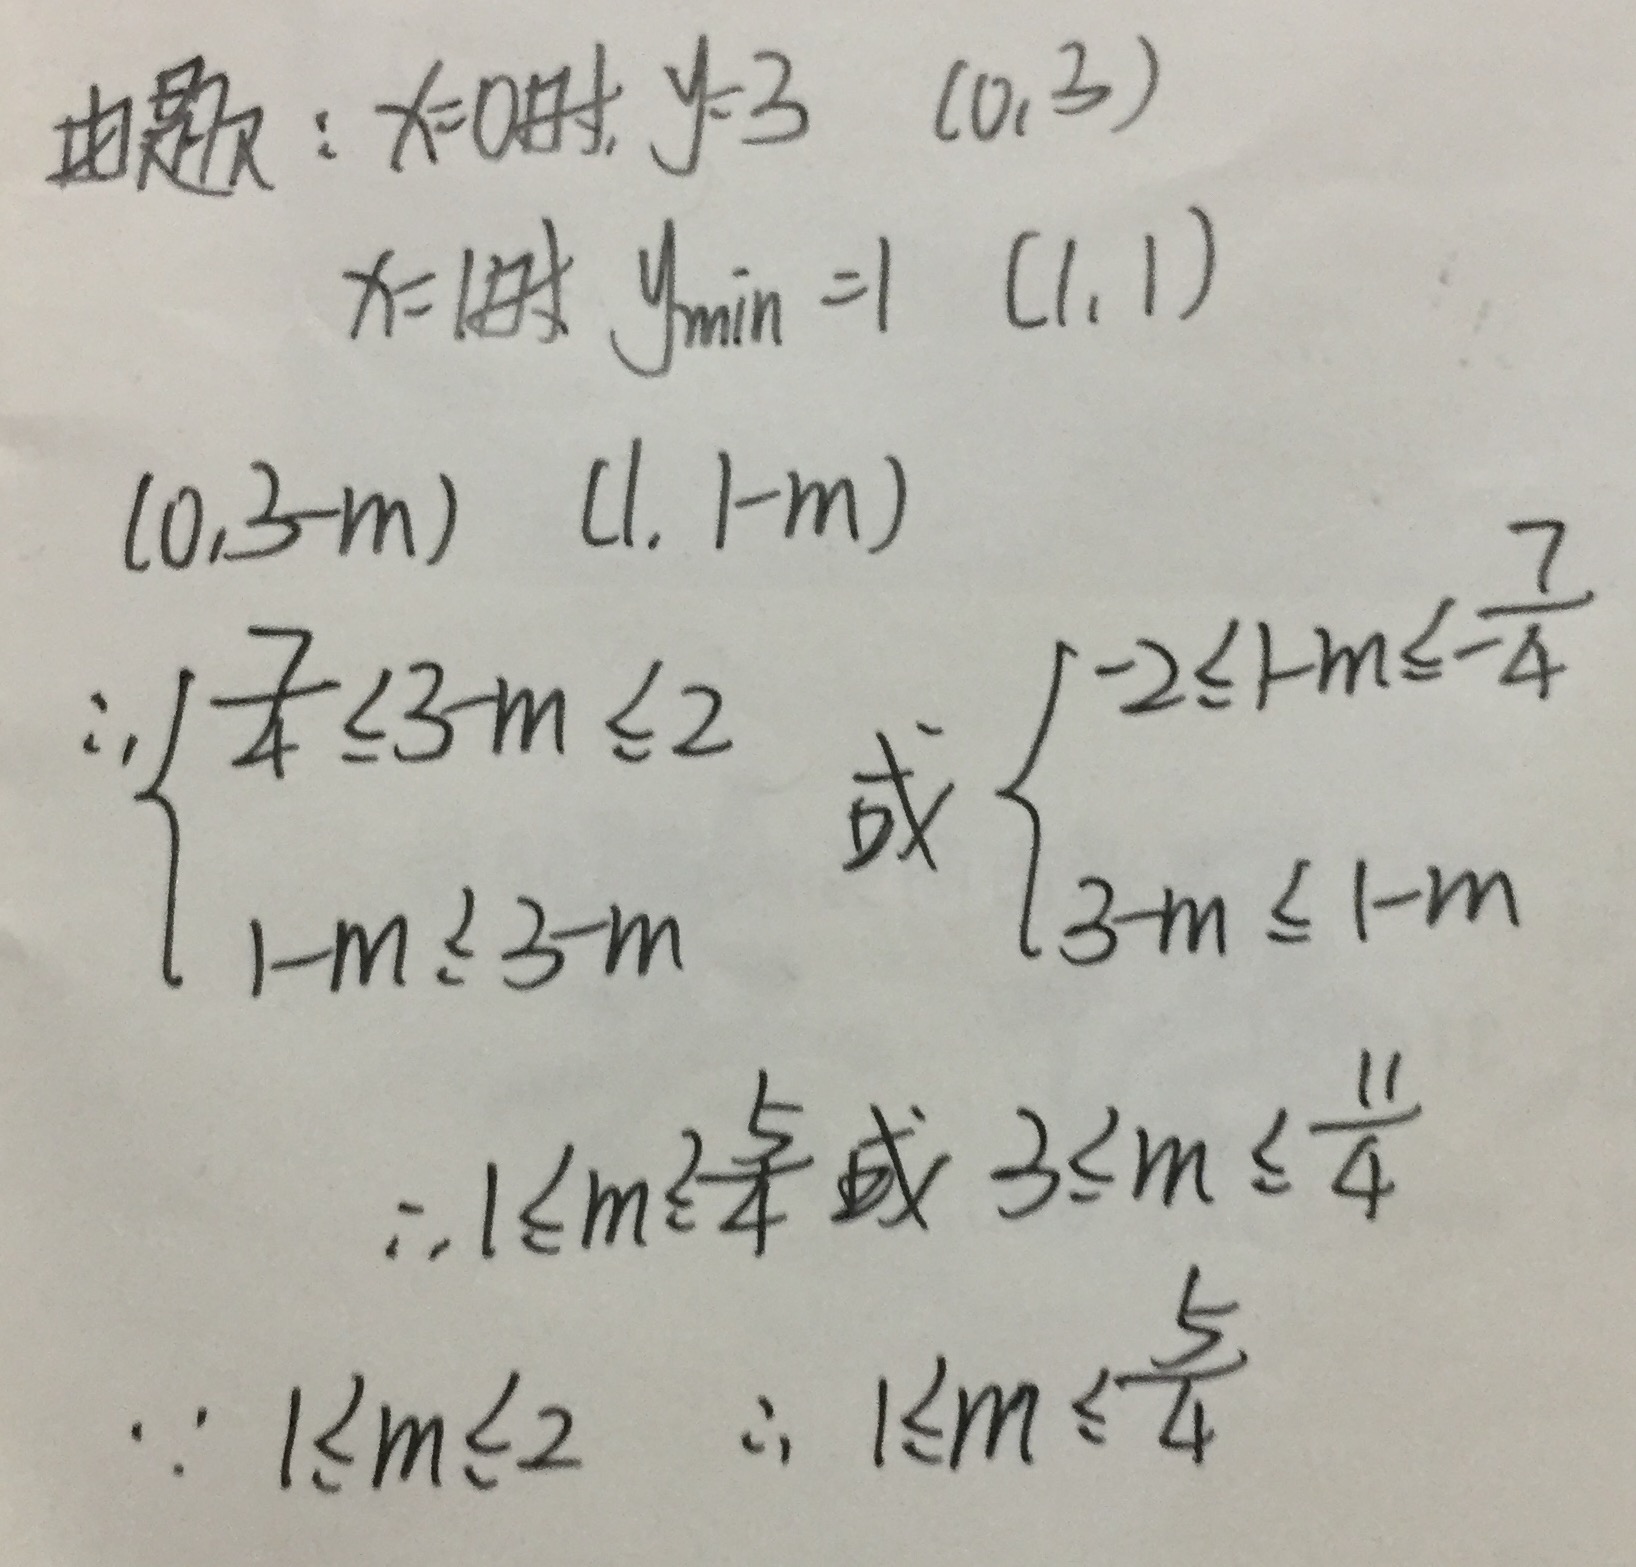 由题：x=0时，y=3 (0,3)
x=1时 ymin=1 (1,1)
(0,3-m) (1,1-m)
∴{7/4≤3-m≤2 或 {-2≤1-m≤-7/4
1-m≤3-m 3-m≤1-m
∴1≤m≤5/4或 3≤m≤11/4
∵ 1≤m≤2 ∴ 1≤m≤5/4